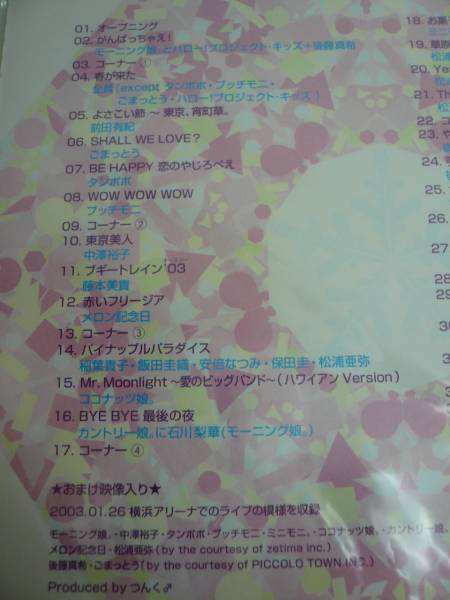 01. オープニング
02. がんばっちゃえ!
モーニング娘。とハロー!プロジェクト・キッズ+後藤真希
03. コーナー①
04. 春が来た
全員(except タンポポ・プッチモニ・
ごまっとう・ハロー!プロジェクト・キッズ)
05. よさこい節 ～ 東京、宵町草。
前田有紀
06. SHALL WE LOVE?
ごまっとう
07. BE HAPPY 恋のやじろべえ
タンポポ
08. WOW WOW WOW
プッチモニ
09. コーナー②
10. 東京美人
中澤裕子
11. ブギートレイン'03
藤本美貴
12. 赤いフリージア
メロン記念日
13. コーナー③
14. パイナップルパラダイス
稲葉貴子・飯田圭織・安倍なつみ・保田圭・松浦亜弥
15. Mr. Moonlight ～愛のビッグバンド～(ハワイアン Version)
ココナッツ娘。
16. BYE BYE 最後の夜
カントリー娘。に石川梨華(モーニング娘。)
17. コーナー④
18. お菓
ミニモ
19.
松浦
20. Yea
松浦
21. Th
22. コ
23. や
24.
25.
26.
27.
28.
29.
30
3
3
★おまけ映像入り★
2003.01.26 横浜アリーナでのライブの模様を収録
モーニング娘。・中澤裕子・タンポポ・プッチモニ・ミニモニ。・ココナッツ娘。・カントリー娘。
メロン記念日・松浦亜弥(by the courtesy of zetima inc.)
後藤真希・ごまっとう(by the courtesy of PICCOLO TOWN INC.)
Produced by つんく♂